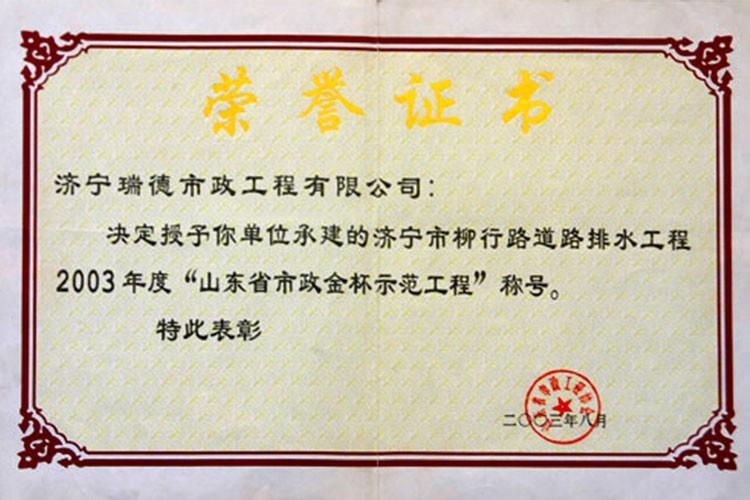 荣誉证书
济宁瑞德市政工程有限公司：
决定授予你单位承建的济宁市柳行路道路排水工程
2003年度“山东省市政金杯示范工程”称号。
特此表彰
山东省市政工程协会
二〇〇三年八月